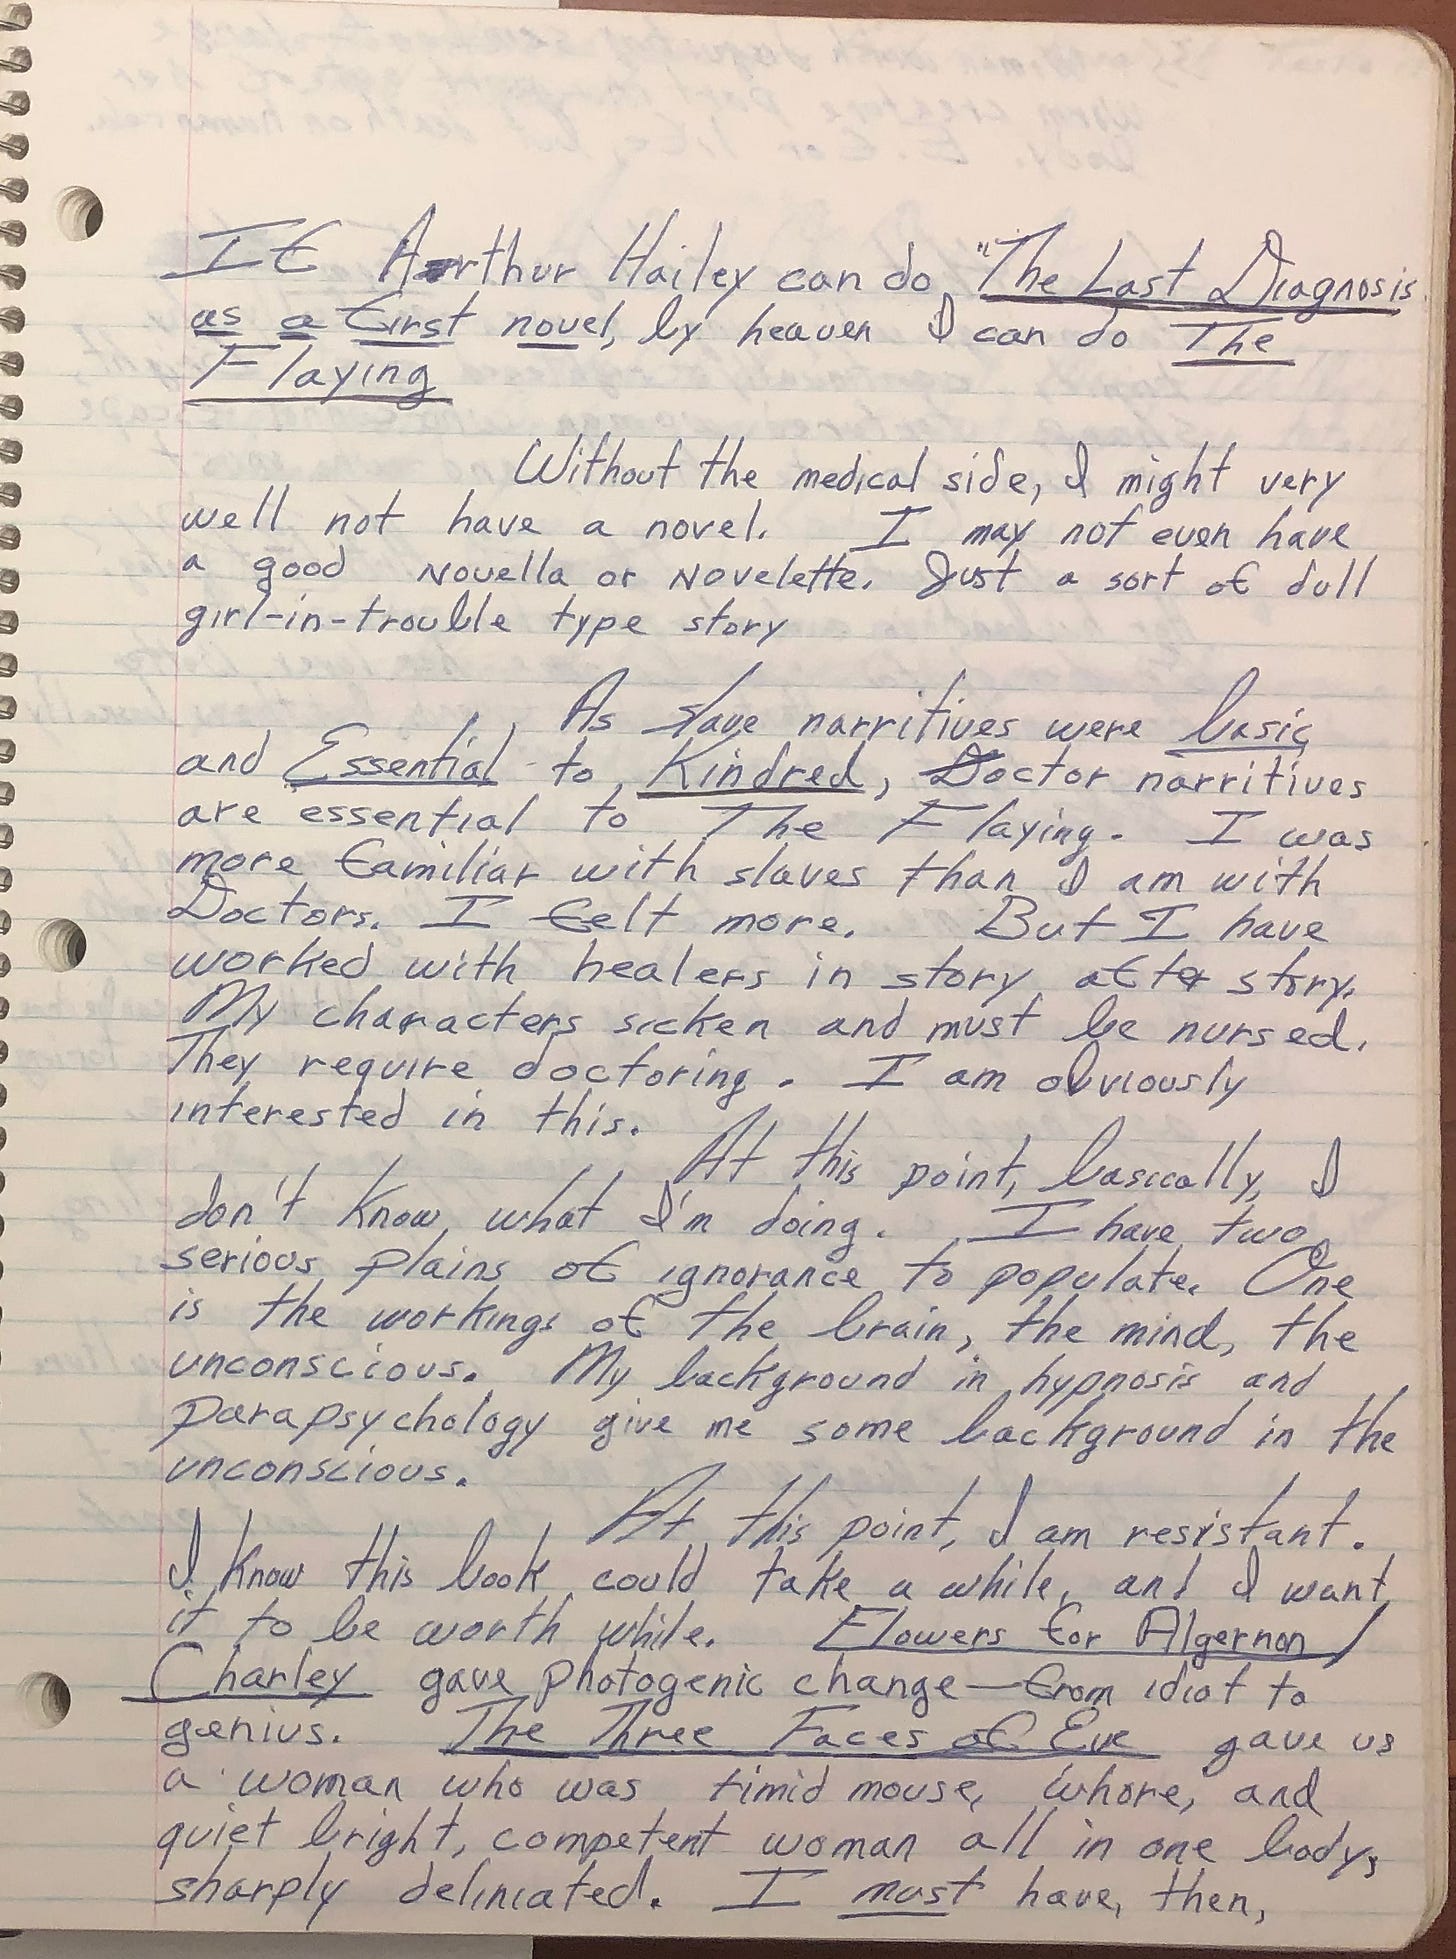 If Arthur Hailey can do "The Last Diagnosis
as a first novel, by heaven I can do The
Flaying
Without the medical side, I might very
well not have a novel. I may not even have
a good Novella or Novelette. Just a sort of dull
girl-in-trouble type story
As slave narritives were basic
and Essential to Kindred, Doctor narritives
are essential to The Flaying. I was
more familiar with slaves than I am with
Doctors. I felt more. But I have
worked with healers in story after story.
My characters sicken and must be nursed.
They require doctoring. I am obviously
interested in this.
At this point, basically, I
don't know what I'm doing. I have two
serious plains of ignorance to populate. One
is the workings of the brain, the mind, the
unconscious. My background in hypnosis and
parapsychology give me some background in the
unconscious.
At this point, I am resistant.
I know this book could take a while, and I want
it to be worth while. Flowers for Algernon/
Charley gave photogenic change—from idiot to
genius. The Three Faces of Eve gave us
a woman who was timid mouse, whore, and
quiet bright, competent woman all in one body;
sharply deliniated. I must have, then,